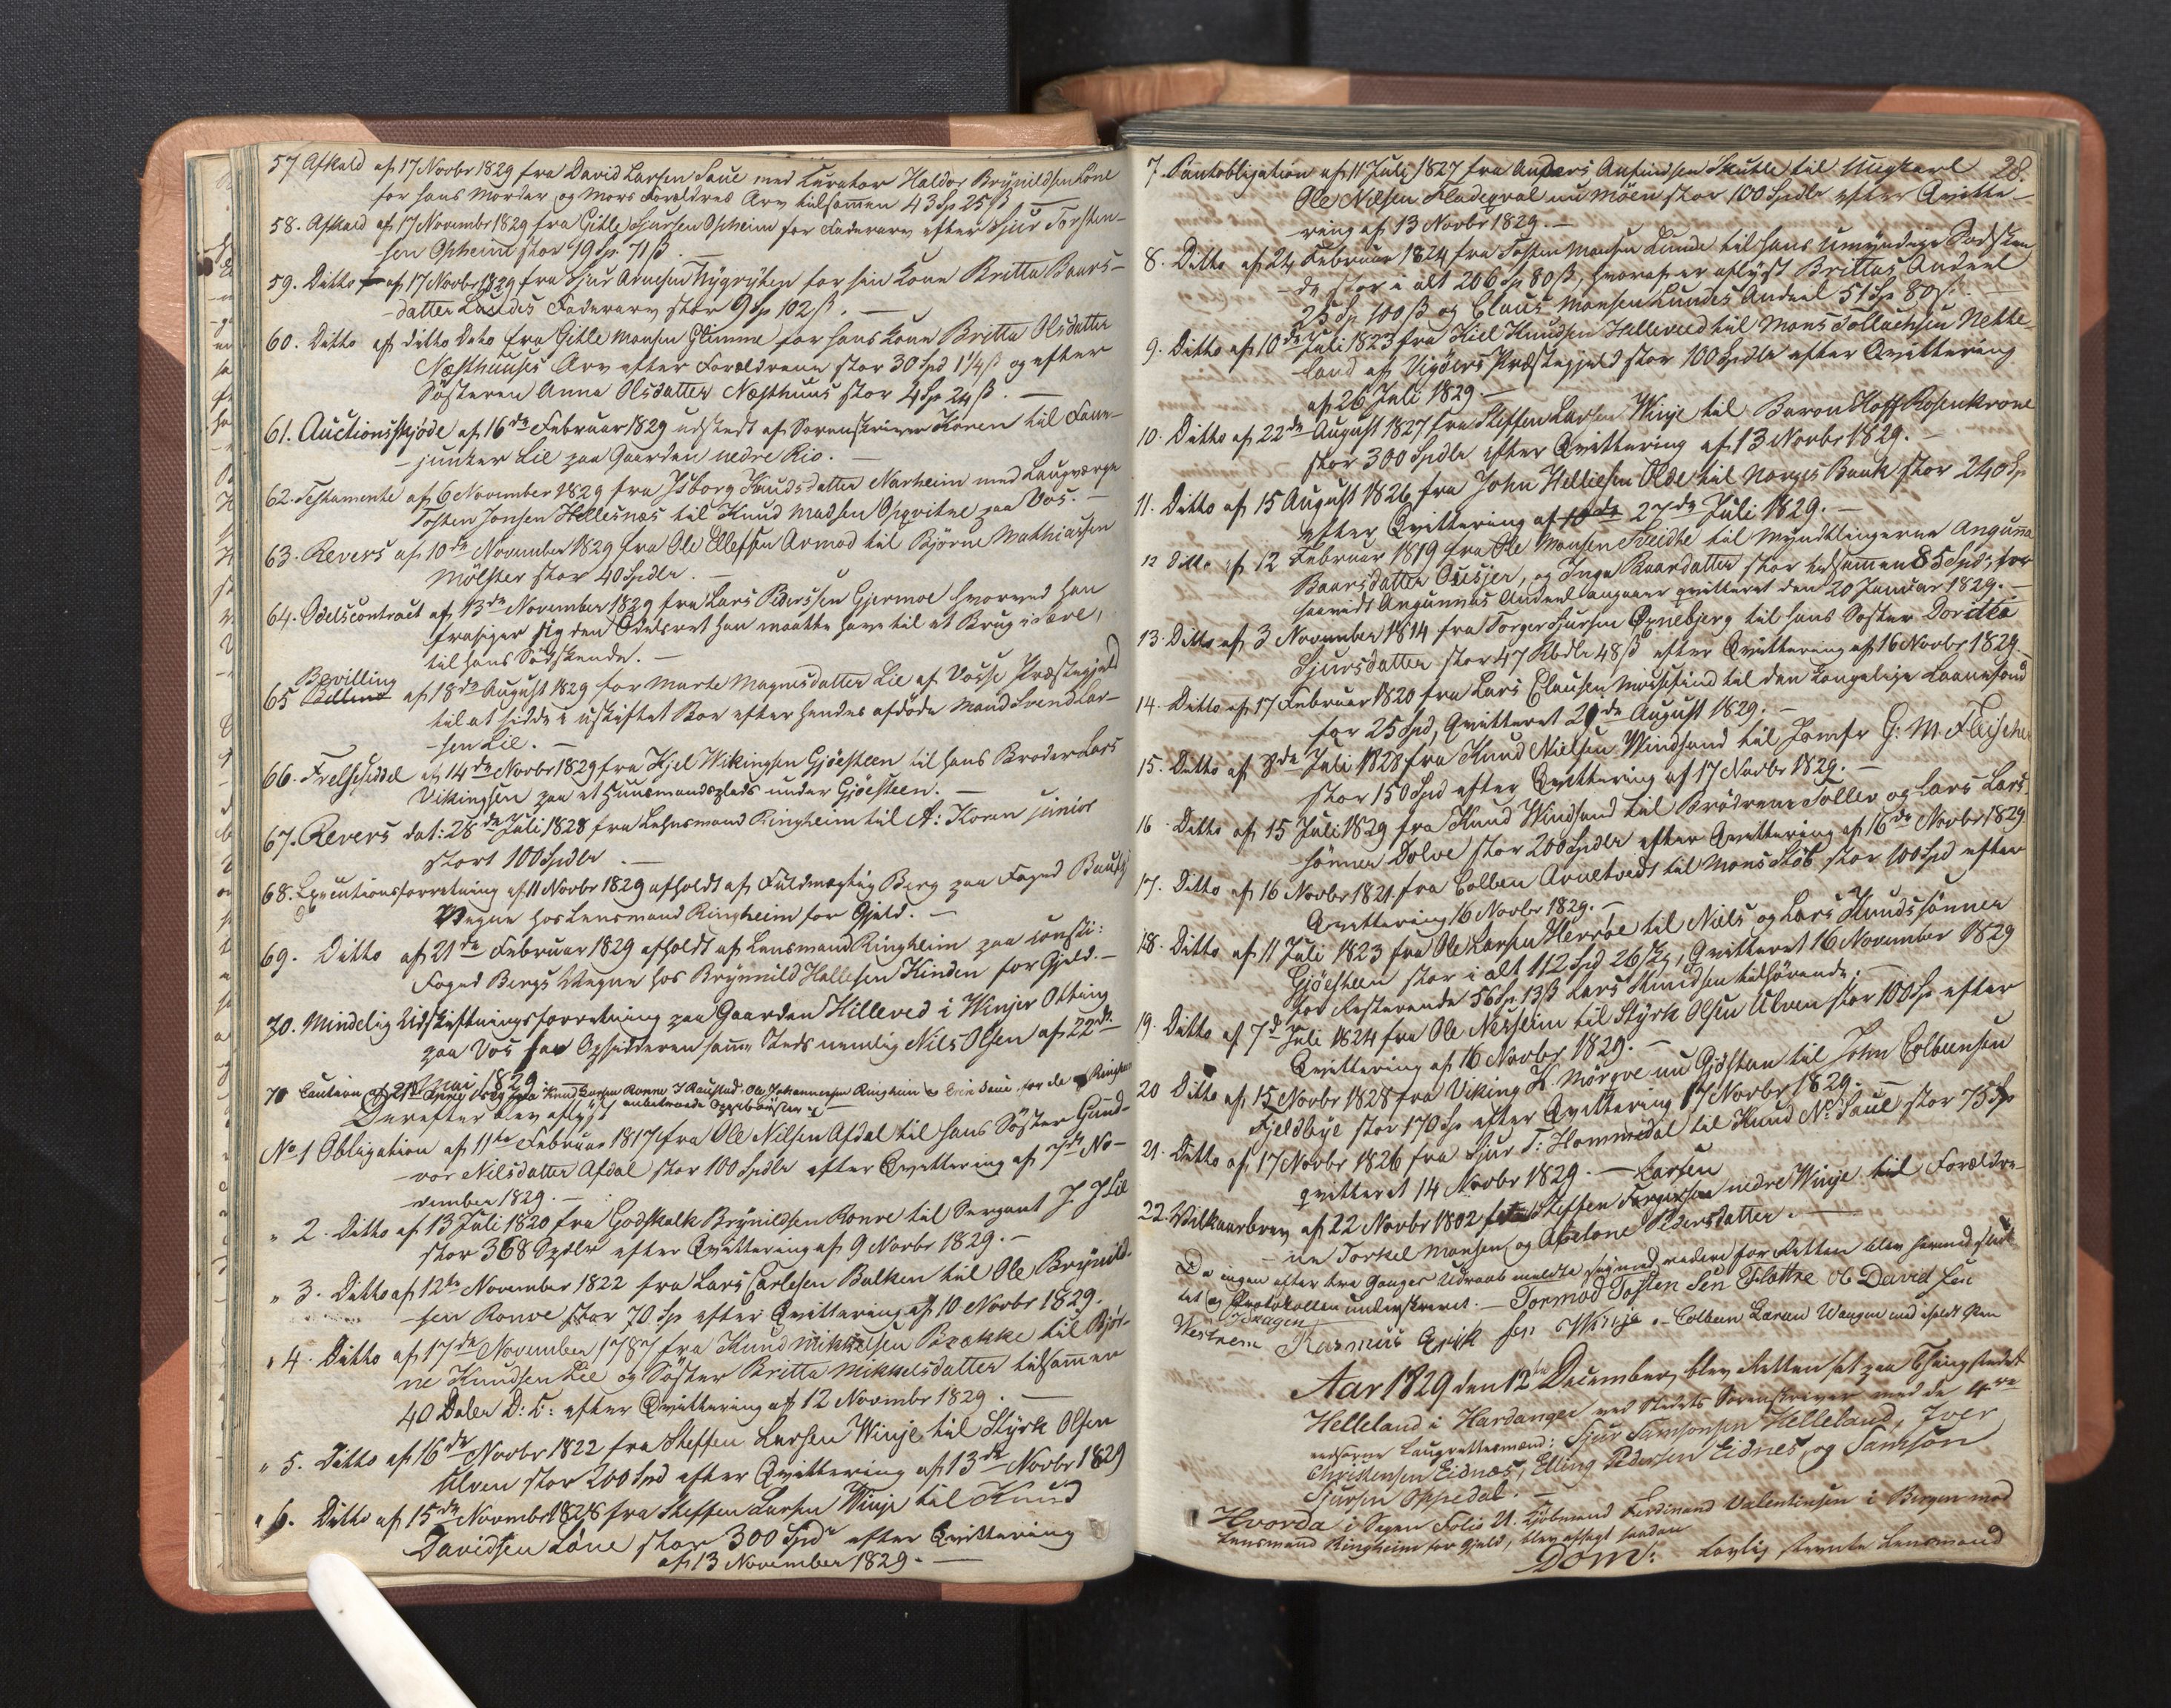 57. Afkald af 17 Novbr 1829 fra David Larsen Saue med Curator Haldor Brynildsen Lône
for hans Moder og Mors Forældres Arv tilsammen 43 Sp 25 ß
58. Afkald af 17 Novembr 1829 fra Gitle Sjursen Opheim for Faderarv efter Sjur Torsten-
sen Opheim stor 19 Sp. 71 ß.
59. Ditto af 17 Novbr 1829 fra Sjur Arnesen Nÿgrÿten for sin Kone Britta Baars-
datter Lundes Faderarv stor 9 Sp 102 ß.
60. Ditto af ditto Dato fra Gitle Monsen Glimme for hans Kone Britta Olsdatter
Næsthuuses Arv efter Forældrene stor 30 Spd 1 1/4 ß og efter
Søsteren Anna Olsdatter Næsthuus stor 4 Sp 24 ß.
61. Auctionsskjøde af 16de Februar 1829 udstedt af Sorenskriver Koren til Faur-
junker Lie paa Gaarden nedre Rio.
62. Testamente af 6 November 1829 fra Isborg Knudsdatter Narheim med Laugværge
Tosten Jonsen Hellesnæs til Knud Madsen Gjqvitne paa Vos.
63. Revers af 10de November 1829 fra Ole Ellefsen Armod til Bjørne Mathiassen
Mølster stor 40 Spdlr.
64. Odelscontract af 13de November 1829 fra Lars Pederssen Gjermoe hvorved han
frasiger sig den Odelsret han maatte have til et Brug i
til hans Sødskende.
Bevilling
65 af 18de August 1829 for Marte Magnesdatter Lie af Vosse Præstegjeld
til at sidde i uskiftet Boe efter hendes afdøde Mand Svend Lar-
sen Lie.
66. Fæsteseddel af 14de Novbr 1829 fra Kjel Wikingsen Gjøesteen til hans Broder Lars
Vikingsen paa et Huusmandsplads under Gjøesteen.
67. Revers dat: 28de Juli 1828 fra Lehnsmand Ringheim til A: Koren junior
stort 100 Spdlr.
68. Executionsforretning af 11 Novbr 1829 afholdt af Fuldmægtig Berg paa Foged
Vegne hos Lensmand Ringheim for Gjeld.
69. Ditto af 21de Februar 1829 afholdt af Lensmand Ringheim paa consti:
Foged Bergs Vegne hos Brynnild Hallesen Kinden for Gjeld.
70. Mindelig Udskiftningsforretning paa Gaarden Hilleved i Winjer Otting
paa Vos for Opsidderen samme Steds nemlig Nils Olsen af 22de
Mai 1829
71 Caution Knud Larsen Rønne, Ole Johannessen Ringheim Erik Saue for de
anbetroede Oppebørsler
Derefter blev aflyst
No 1 Obligation af 11te Februar 1817 fra Ole Nilsen Afdal til hans Søster Gund-
vor Nilsdatter Afdal stor 100 Spdlr efter Qvittering af 7de No-
vember 1829.
" 2. Ditto af 13 Juli 1820 fra Godskalk Brÿnildsen Ronve til Sergant J. J Lie
stor 368 Spdlr efter Qvittering af 9 Novbr 1829.
" 3. Ditto af 12te November 1822 fra Lars Carlesen Balken til Ole Brÿnild-
sen Ronve stor 70 Sp efter Qvittering af 10 Novbr 1829.
" 4. Ditto af 17de November 1787 fra Knud Mikkelsen Brække til Bjør-
ne Knudsen Lie og Søster Britta Mikkelsdatter tilsammen
40 Daler D: C: efter Qvittering af 12 Novembr 1829.
" 5. Ditto af 16de Novbr 1822 fra Steffen Larsen Winje til Stÿrk Olsen
Ulven stor 200 Spd efter Qvittering af 13de Novbr 1829
" 6. Ditto af 15de Novembr 1828 fra Steffen Larsen Winje til Knud
Davidsen Løne stor 300 Spd efter Qvittering
af 13 November 1829.
28.
7. Pantobligation af 11 Juli 1827 fra Anders Anfindsen Skutle til Ungkarl
Ole Nilsen Fladeqval nu Møen stor 100 Spdlr efter Qvitte-
ring af 13 Novbr 1829.
8. Ditto af 24 Februar 1824 fra Tosten Monsen Lunde til hans umyndige Sødsken-
de stor i alt 206 Sp 80 ß, hvoraf er aflyst Brittas Andeel
25 Sp 100 ß og Claus Monsen Lundes Andeel 51 Sp 80 ß.
9. Ditto af 10de Juli 1823 fra Kiel Knudsen Helleved til Mons Tollachsen Nette-
land af Vigøers Præstegjeld stor 100 Spdlr efter Qvittering
af 26 Juli 1829.
10. Ditto af 22de August 1827 fra Steffen Larsen Winje til Baron Hoff Rosenkrone
stor 300 Spdlr efter Qvittering af 13 Novbr 1829.
11. Ditto af 15 August 1826 fra John Helliesen Olde til Norges Bank stor 240 Sp
efter Qvittering af 27de Juli 1829.
12 Ditto af 12 Februar 1819 fra Ole Monsen Treidhe til Myndtlingerne Angunna
Baarsdatter Ousjer, og Inga Baardatter stor tilsammen 85 Spd, for
saavidt Angunnas Andeel angaaer qvitteret den 20 Januar 1829.
13. Ditto af 3 November 1814 fra Torger Sjursen Gjnebjerg til hans Søster Doritha
Sjursdatter stor 47 Rbdlr 48 ß efter Qvittering af 16 Novbr 1829.
14. Ditto af 17 Februar 1820 fra Lars Clausen Mossefind til den kongelige Laanefond
for 25 Spd, Qvitteret 21de August 1829.
15. Ditto af 8de Juli 1828 fra Knud Nielsen Windsand til Jomfr G: M. Fleischer
stor 150 Spd efter Qvittering af 17 Novbr 1829.
16. Ditto af 15 Juli 1829 fra Knud Windsand til Brødrene Tollev og Lars Lars-
sønner Dolve stor 200 Spdlr efter Qvittering af 16de Novbr 1829
17. Ditto af 16 Novbr 1821 fra Colben Arnetvedt til Mons Støb stor 100 Spd efter
Qvittering 16 Novbr 1829.
18. Ditto af 11 Juli 1823 fra Ole Larsen Herrøe til Niels og Lars Knudssønner
Gjøesteen stor i alt 112 Spd 26 ß, Qvitteret 16 November 1829
for Resterende 56 Sp 13 ß Lars Knudsen tilhørende.
19. Ditto af 7de Juli 1824 fra Ole Nesheim til Stÿrk Olsen Ulven stor 100 Sp efter
Qvittering af 16 Novbr 1829.
20 Ditto af 15 Novbr 1828 fra Viking K. Mørqve nu Gjøstan til John Colbensen
Fjeldbye stor 170 Sp efter Qvittering 17 Novbr 1829.
21. Ditto af 17 Novbr 1826 fra Sjur T: Hommedal til Knud Ns: Saue stor 75 Sp
qvitteret 14 Novbr 1829.
Larsen
22. Vilkaarbrev af 22 Novbr 1802 fra Steffen nedre Winje til Forældre-
ne Torkel Monsen og Abelone Pedersdatter.
Da ingen efter tre Ganges Udraab meldte sig med videre for Retten blev hermed slut-
tet og Protokollen underskrevet. Tormod Tosten Sen Flattre Ob David Sen
Væstrem Rasmus Erik Sen Colben Larsen Wangen med ført Pen
Aar 1829 den 12te December, blev Retten sat paa Thingstedet
Helleland i Hardanger ved Stedets Sorenskriver med de 4re
edsorne Laugrettesmænd: Sjur Samsonsen Helleland, Iver
Christensen Eidnæs, Elling Pedersen Eidnes, og Samson
Sjursen Oppedal.
Hvorda i Sagen Folio 21. Kjøbmand Ferdinand Valentinsen i Bergen mod
Lensmand Ringheim for Gjeld, blev afsagt saadan
Dom: Lovlig stevnte Lensmand